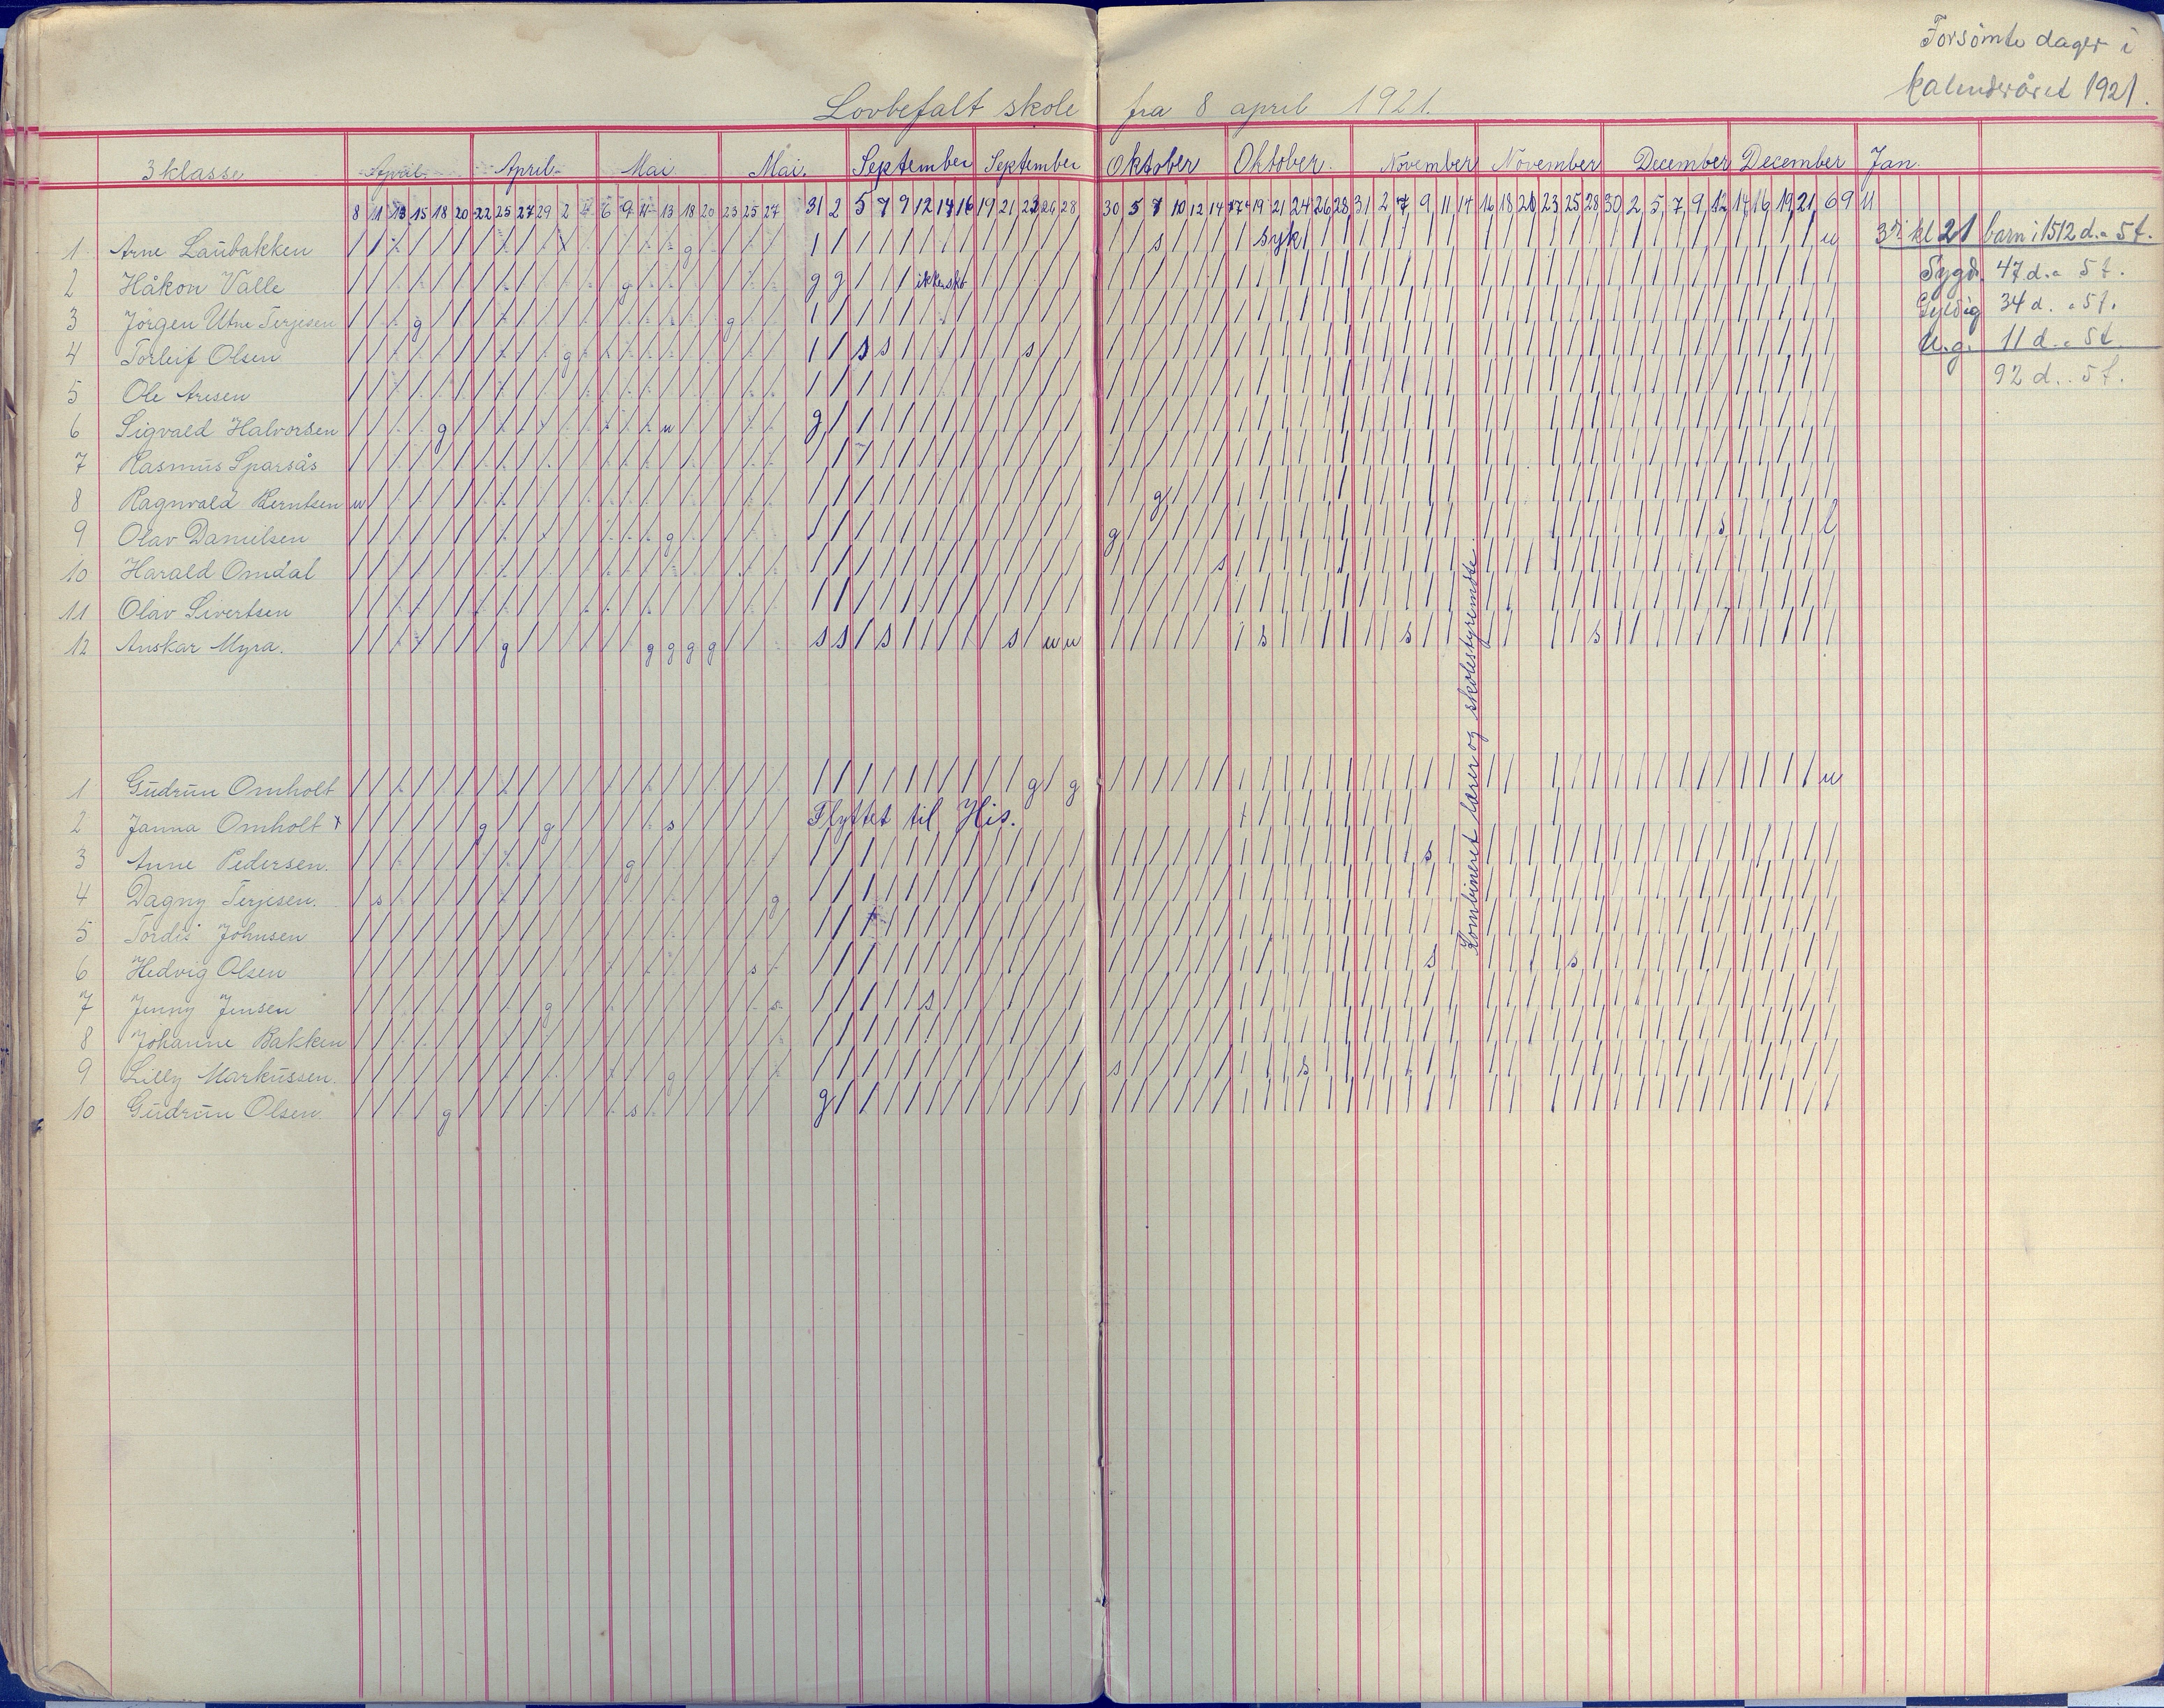 Forsømte dager i
kalenderåret 1921.
Lovbefalt skole fra 8 april 1921.
3 klasse April April Mai Mai. September September Oktober Oktober. November November December December Jan.
8 11 13 15 18 20 22 25 27 29 2 4 6 9 11 13 18 20 23 25 27 31 2 5 7 9 12 14 16 19 21 23 26 28 30 5 7 10 12 14 17 19 21 24 26 28 31 2 4 7 9 11 14 16 18 21 23 25 28 30 2 5 7 9 12 14 16 19 21 6 9 11
1 Arne Laubakken g s syk u
2 Håkon Valle g g g ikke skb
3 Jörgen Utne Terjesen g g
4 Torleif Olsen g s s s
5 Ole Aresen
6 Sigvald Halvorsen g u g
7 Rasmus Sparsås
8 Ragnvald Berntsen u g
9 Olav Danielsen g g s l
10 Harald Omdal s
11 Olav Sivertsen
12 Anskar Myra. g g g g g s s s s u u s s s
1 Gudrun Omholt g g u
2 Janna Omholt x g g s Flyttet til His.
3 Anne Pedersen. g s
4 Dagny Terjesen. s g
5 Tordis Johnsen
6 Hedvig Olsen s s s
7 Jenny Jensen g s s
8 Johanne Bakken
9 Lilly Markussen. g s s
10 Gudrun Olsen g s g
Kombineret lærer og skolestyremöte
3dj kl 21 barn i 1512 d. a 5 t.
Sygd. 47 d. a 5 t.
Gyldig 34 d. a 5 t.
U.g. 11 d. a 5 t.
92 d. . 5 t.